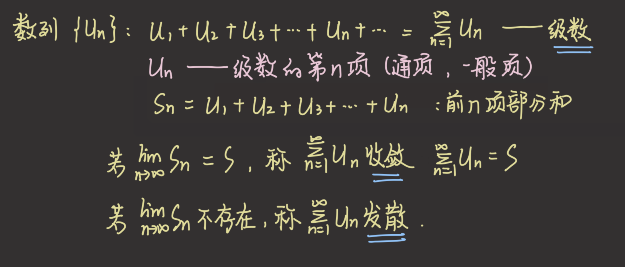 数列 {Un}: U₁+U₂+U₃+⋯+Un+⋯ = ∑_{n=1}^{∞} Un —— 级数
Un —— 级数的第n项 (通项, 一般项)
Sn = U₁+U₂+U₃+⋯+Un :前n项部分和
若 lim_{n→∞} Sn = S, 称 ∑_{n=1}^{∞} Un 收敛 ∑_{n=1}^{∞} Un = S
若 lim_{n→∞} Sn 不存在, 称 ∑_{n=1}^{∞} Un 发散.